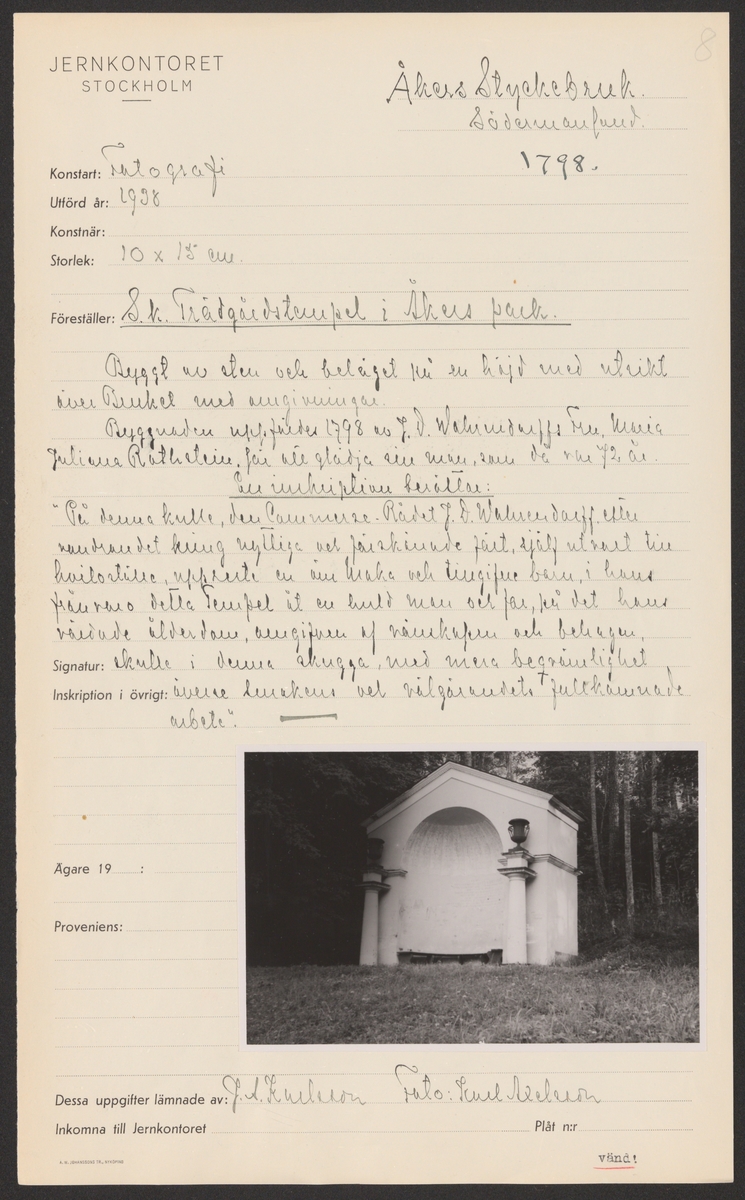 8
JERNKONTORET
STOCKHOLM
Åkers Styckebruk.
Södermanland.
1798.
Konstart: Fotografi
Utförd år: 1938
Konstnär:
Storlek: 10 x 15 cm.
Föreställer: S.k. Trädgårdstempel i Åkers park.
Byggt av sten och beläget på en höjd med utsikt
över Bruket med omgivningar.
Byggnaden uppfördes 1798 av J. D. Wahrendorffs Fru, Maria
Juliana Rothstein, för att glädja sin man, som då var 72 år.
En inskription berättar:
"På denna kulle, den Commerse-Rådet J. D. Wahrendorff efter
vandrandet kring nyttiga och förskönade fält, själf utvalt till
hviloställe, uppreste en öm Maka och tillgifne barn, i hans
frånvaro detta Tempel åt en huld man och far, på det hans
vördade ålderdom, omgifven af vänskapen och behagen,
Signatur: skulle i denna skugga, med mera begvämlighet
Inskription i övrigt: överse smakens och välgörandets fullkomnade
arbete".
Ägare 19 :
Proveniens:
Dessa uppgifter lämnade av: J. A. Karlsson Foto: Karl Axelsson
Inkomna till Jernkontoret Plåt n:r
vänd!